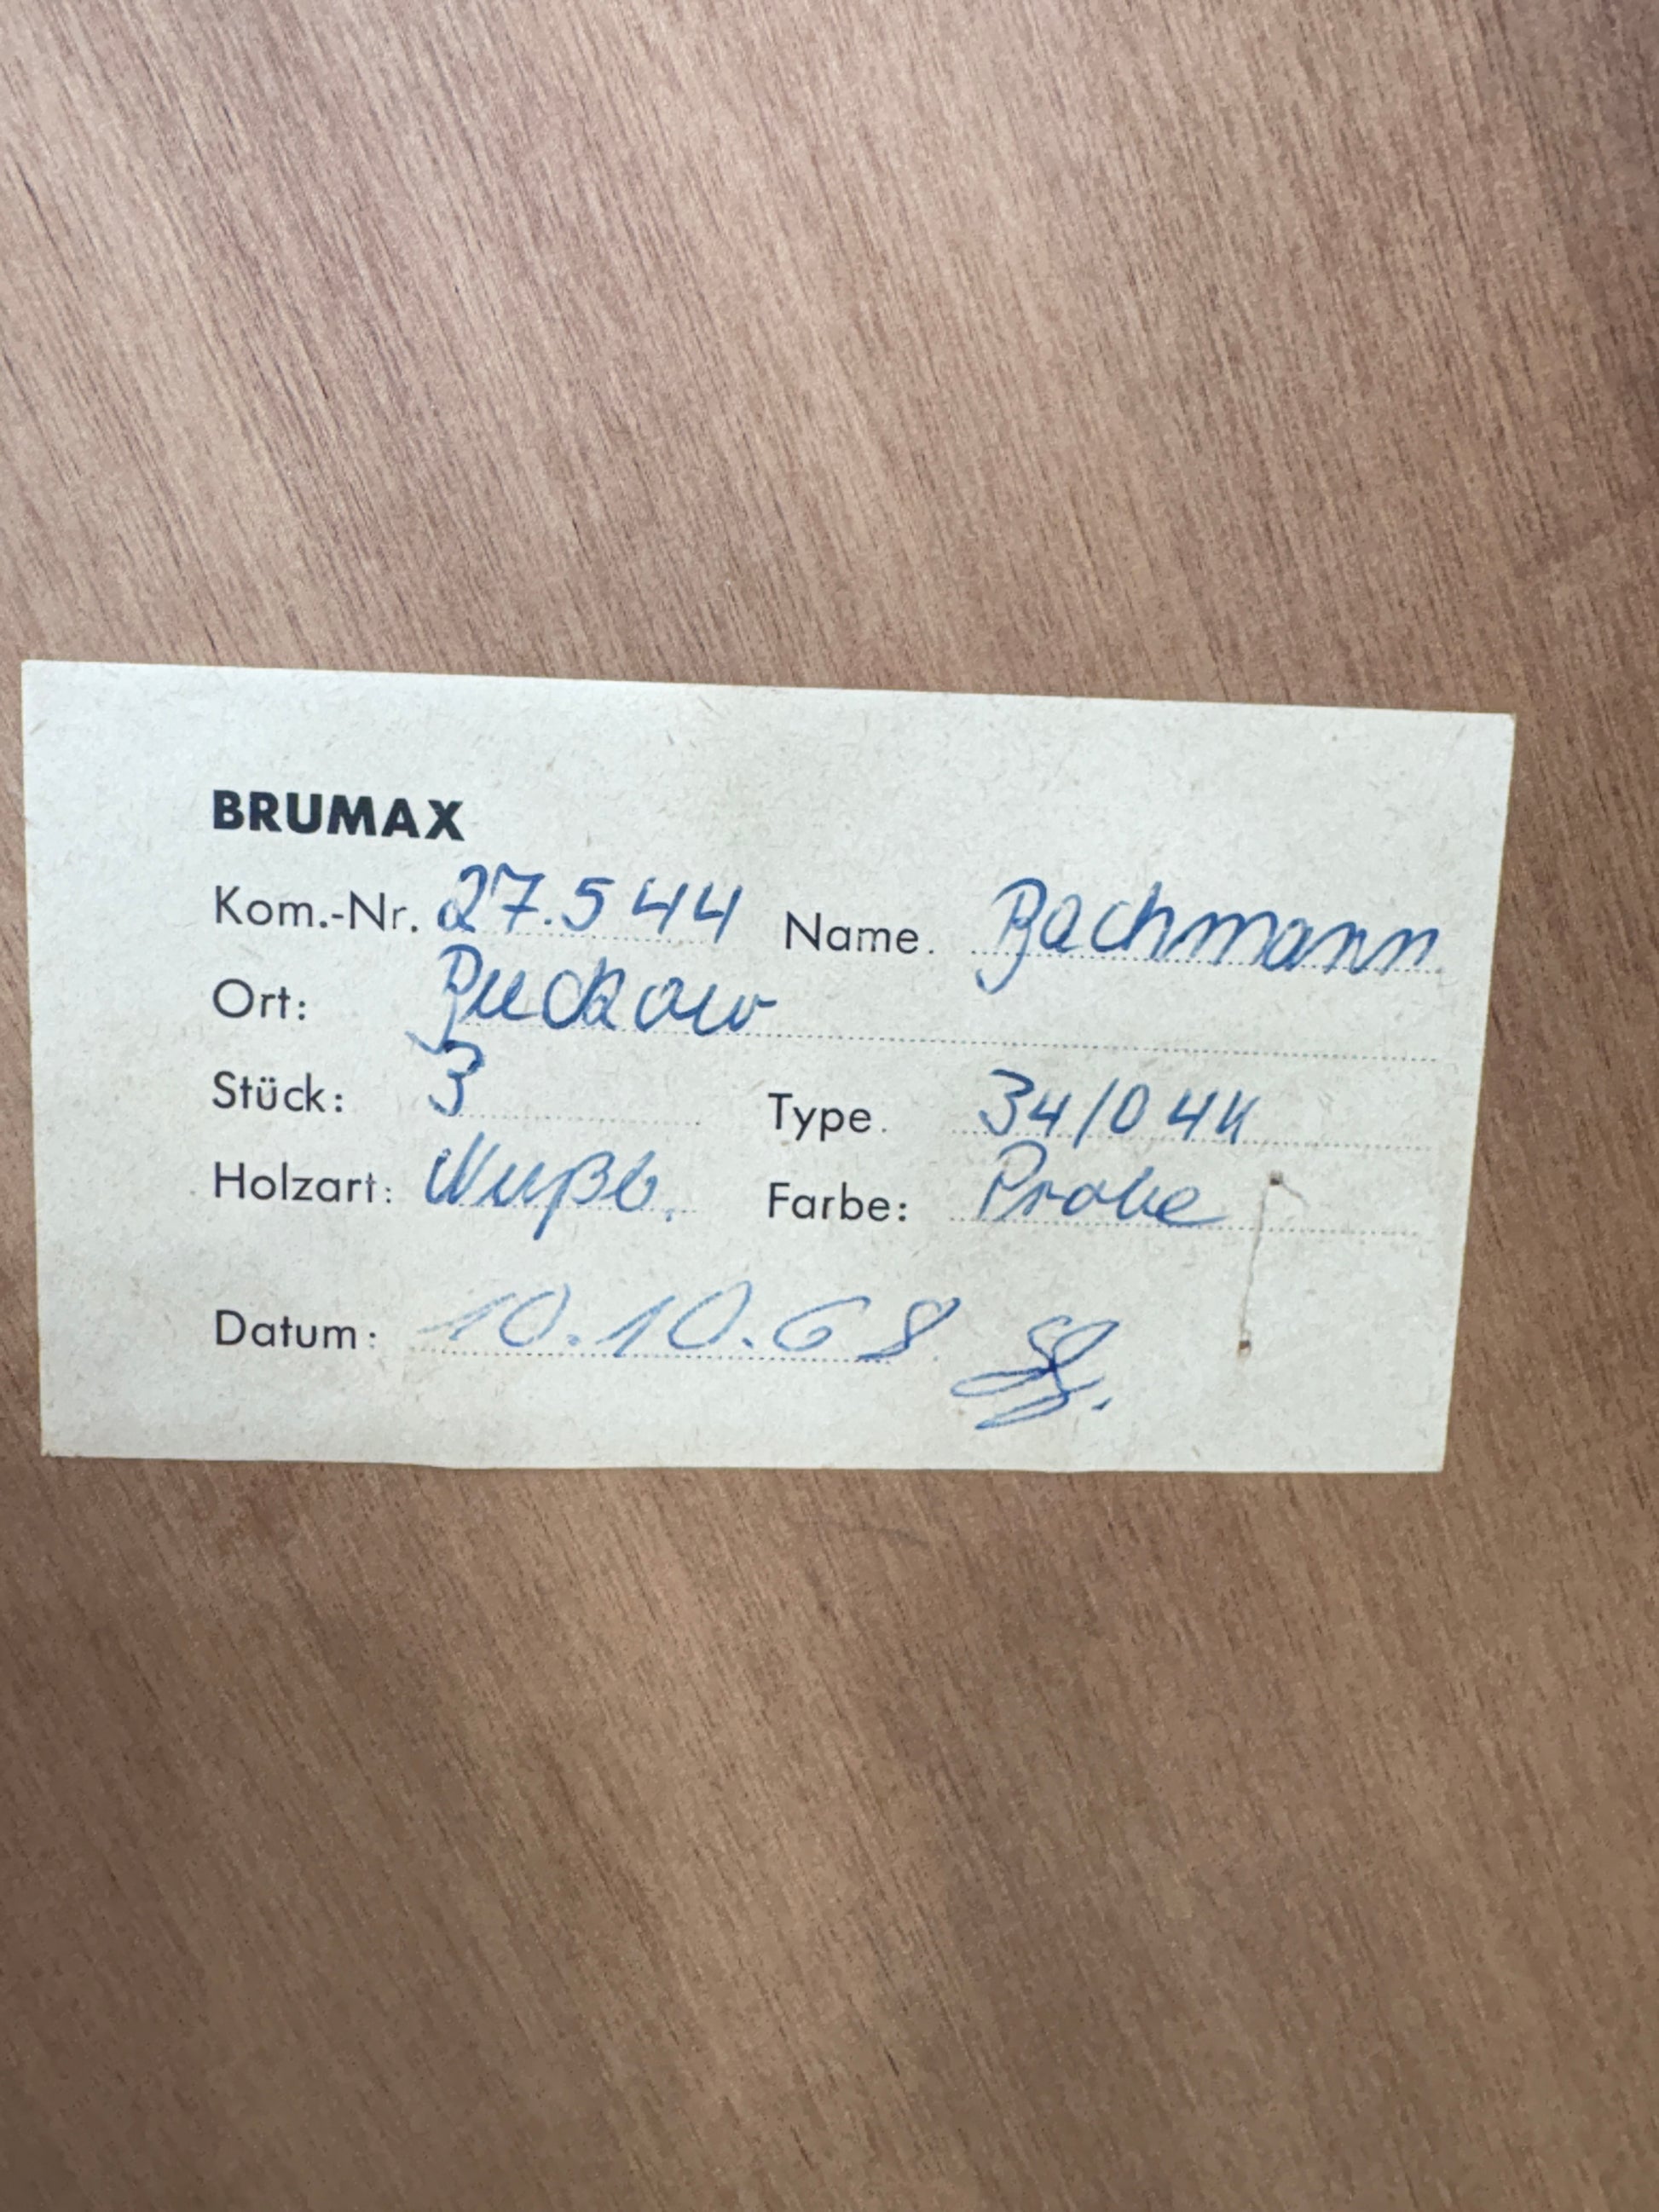 BRUMAX
Kom.-Nr. 27.544 Name. Bachmann
Ort: Buckow
Stück: 3 Type. 34/04K
Holzart: Nußb. Farbe: Probe
Datum: 10.10.68